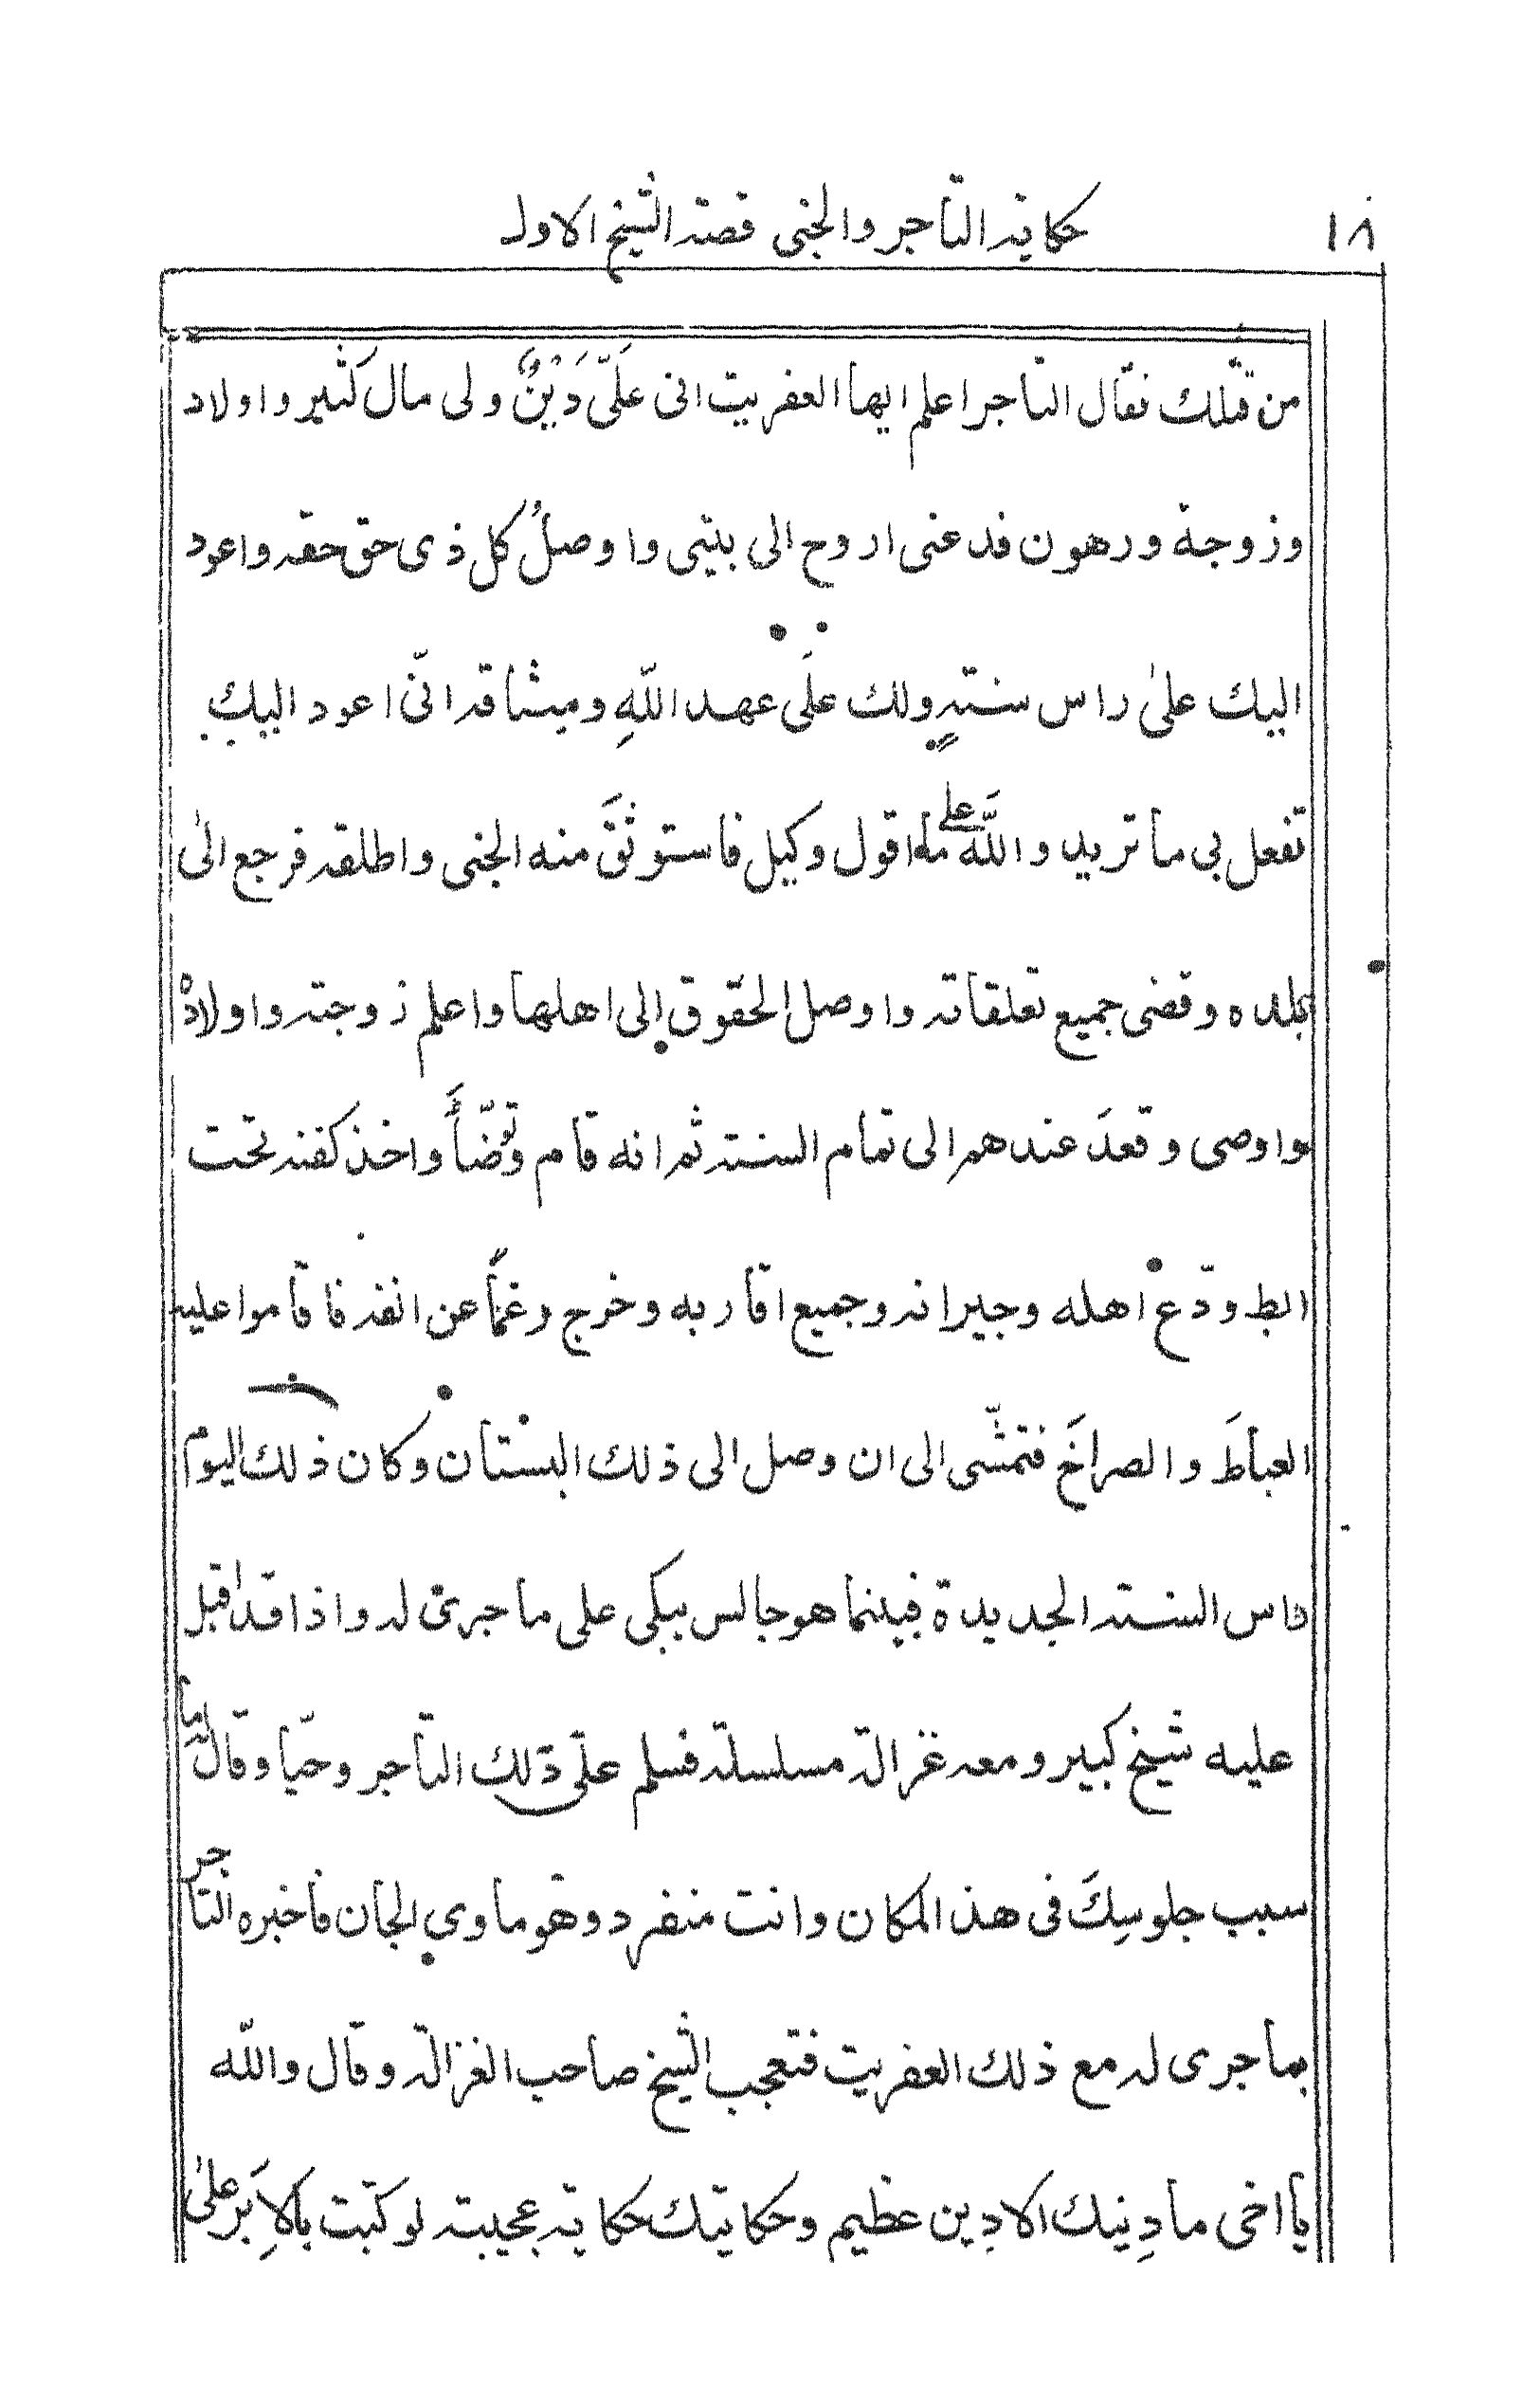 ١٨ حكاية التاجر والجني قصة الشيخ الاول
من قتلك فقال التاجر اعلم ايها العفريت انى عَلَىَّ دَيْنٌ ولى مال كثير واولاد
وزوجة ورهون فدعنى اروح الى بيتى واوصلُ كل ذى حق حقه واعود
اليك علىٰ راس سنةٍ ولك علَى عهد اللّهِ وميثاقه انّى اعود اليك
تفعل بي ما تريد واللّه علي ما اقول وكيل فاستوثقَ منه الجنى واطلقه فرجع الىٰ
بلده وقضى جميع تعلقاته واوصل الحقوق الى اهلها واعلم زوجته واولاده
واوصى وقعدَ عندهم الى تمام السنة ثم انه قام وتوضّأَ واخذ كفنه تحت
ابط وودّع اهله وجيرانه وجميع اقاربه وخرج رغماً عن انفه فاقاموا عليه
العياطَ والصراخَ فتمشّى الى ان وصل الى ذلك البستان وكان ذلك اليوم
راس السنة الجديدة فبينما هو جالس يبكى على ما جرى له واذا قد اقبل
عليه شيخ كبير ومعه غزالة مسلسلة فسلم على ذلك التاجر وحيّا وقال له ما
سبب جلوسِكَ فى هذ المكان وانت منفرد وهو ماوي الجان فاخبره التاجر
بما جرى له مع ذلك العفريت فتعجب الشيخ صاحب الغزالة وقال واللّه
يا اخى ما دِينك الا دِين عظيم وحكايتك حكاية عجيبة لو كتبت بالاِبَر علىٰ